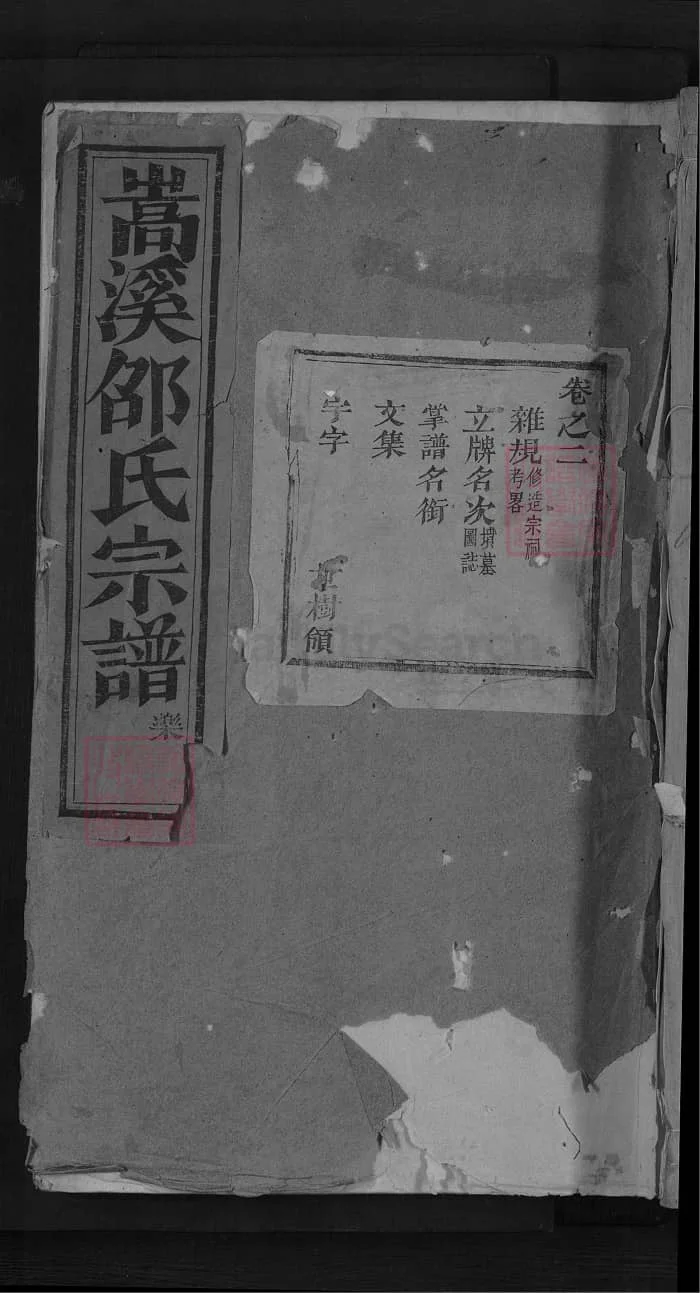 嵩溪邵氏宗譜
樂
卷之二
雜規
修造宗祠
考畧
立牌名次
墳墓
圖誌
掌譜名銜
文集
字
樹領